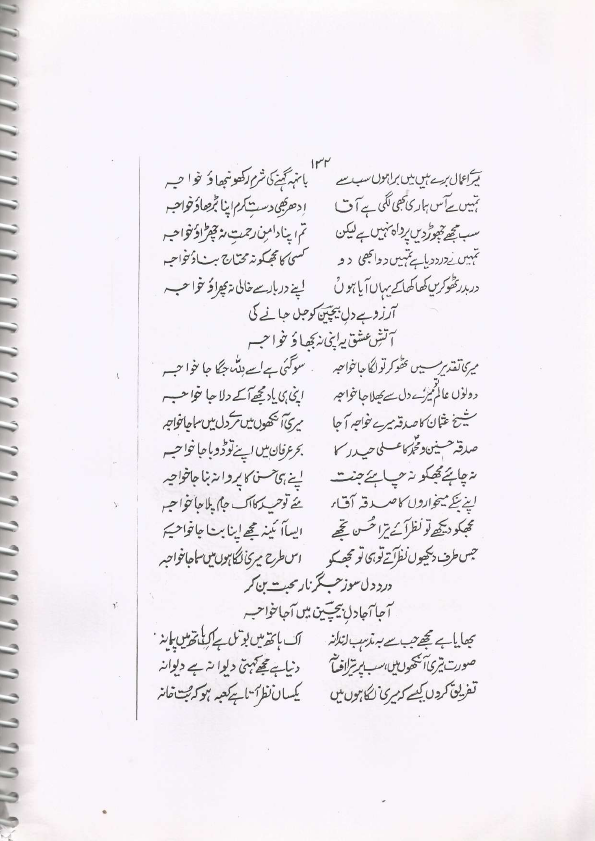 ۱۳۲
میرے اعمال برے ہیں میں برا ہوں سب سے بانہہ گہنے کی شرم رکھو نبھاؤ خواجہ
تمہیں سے آس ہماری بھی لگی ہے آقا ادھر بھی دستِ کرم اپنا بڑھاؤ خواجہ
سب مجھے چھوڑ دیں پرواہ نہیں ہے لیکن تم اپنا دامنِ رحمت نہ چھڑاؤ خواجہ
تمہیں نے درد دیا ہے تمہیں دوا بھی دو کسی کا مجھکو نہ محتاج بناؤ خواجہ
در بدر ٹھوکریں کھا کھا کے یہاں آیا ہوں اپنے دربار سے خالی نہ پھراؤ خواجہ
آرزو ہے دلِ بیچین کو جل جانے کی
آتشِ عشق یہ اپنی نہ بجھاؤ خواجہ
میری تقدیر میں ٹھوکر تو لگا جا خواجہ سو گئی ہے اسے للہ جگا جا خواجہ
دونوں عالم تو میرے دل سے بھلا جا خواجہ اپنی ہی یاد مجھے آکے دلا جا خواجہ
شیخ عثمان کا صدقہ میرے خواجہ آجا میری آنکھوں میں مرے دل میں سما جا خواجہ
صدقہ حسنین و محمد کا علی حیدر کا بحر عرفان میں اپنے تو ڈوبا جا خواجہ
نہ چاہئے مجھکو نہ چاہئے جنت اپنے ہی حسن کا پروانہ بنا جا خواجہ
اپنے میخواروں کا صدقہ آقا مئے توحید کا اک جام پلا جا خواجہ
مجھکو دیکھے تو نظر آئے ترا حسن تجھے ایسا آئینہ مجھے اپنا بنا جا خواجہ
جس طرف دیکھوں نظر آئے تو ہی تو مجھکو اس طرح میری نگاہوں میں سما جا خواجہ
درد دل سوز جگر نار محبت بن کر
آجا آجا دلِ بیچین میں آجا خواجہ
بھایا ہے مجھے جب سے یہ مذہب رندانہ اک ہاتھ میں بوتل ہے اک ہاتھ میں پیمانہ
صورت تیری آنکھوں میں، لب پر ترا افسانہ دنیا ہے مجھے کہتی دیوانہ ہے دیوانہ
تفریق کروں کیسے کہ میری نگاہوں میں یکساں نظر آتا ہے کعبہ ہو کہ بت خانہ